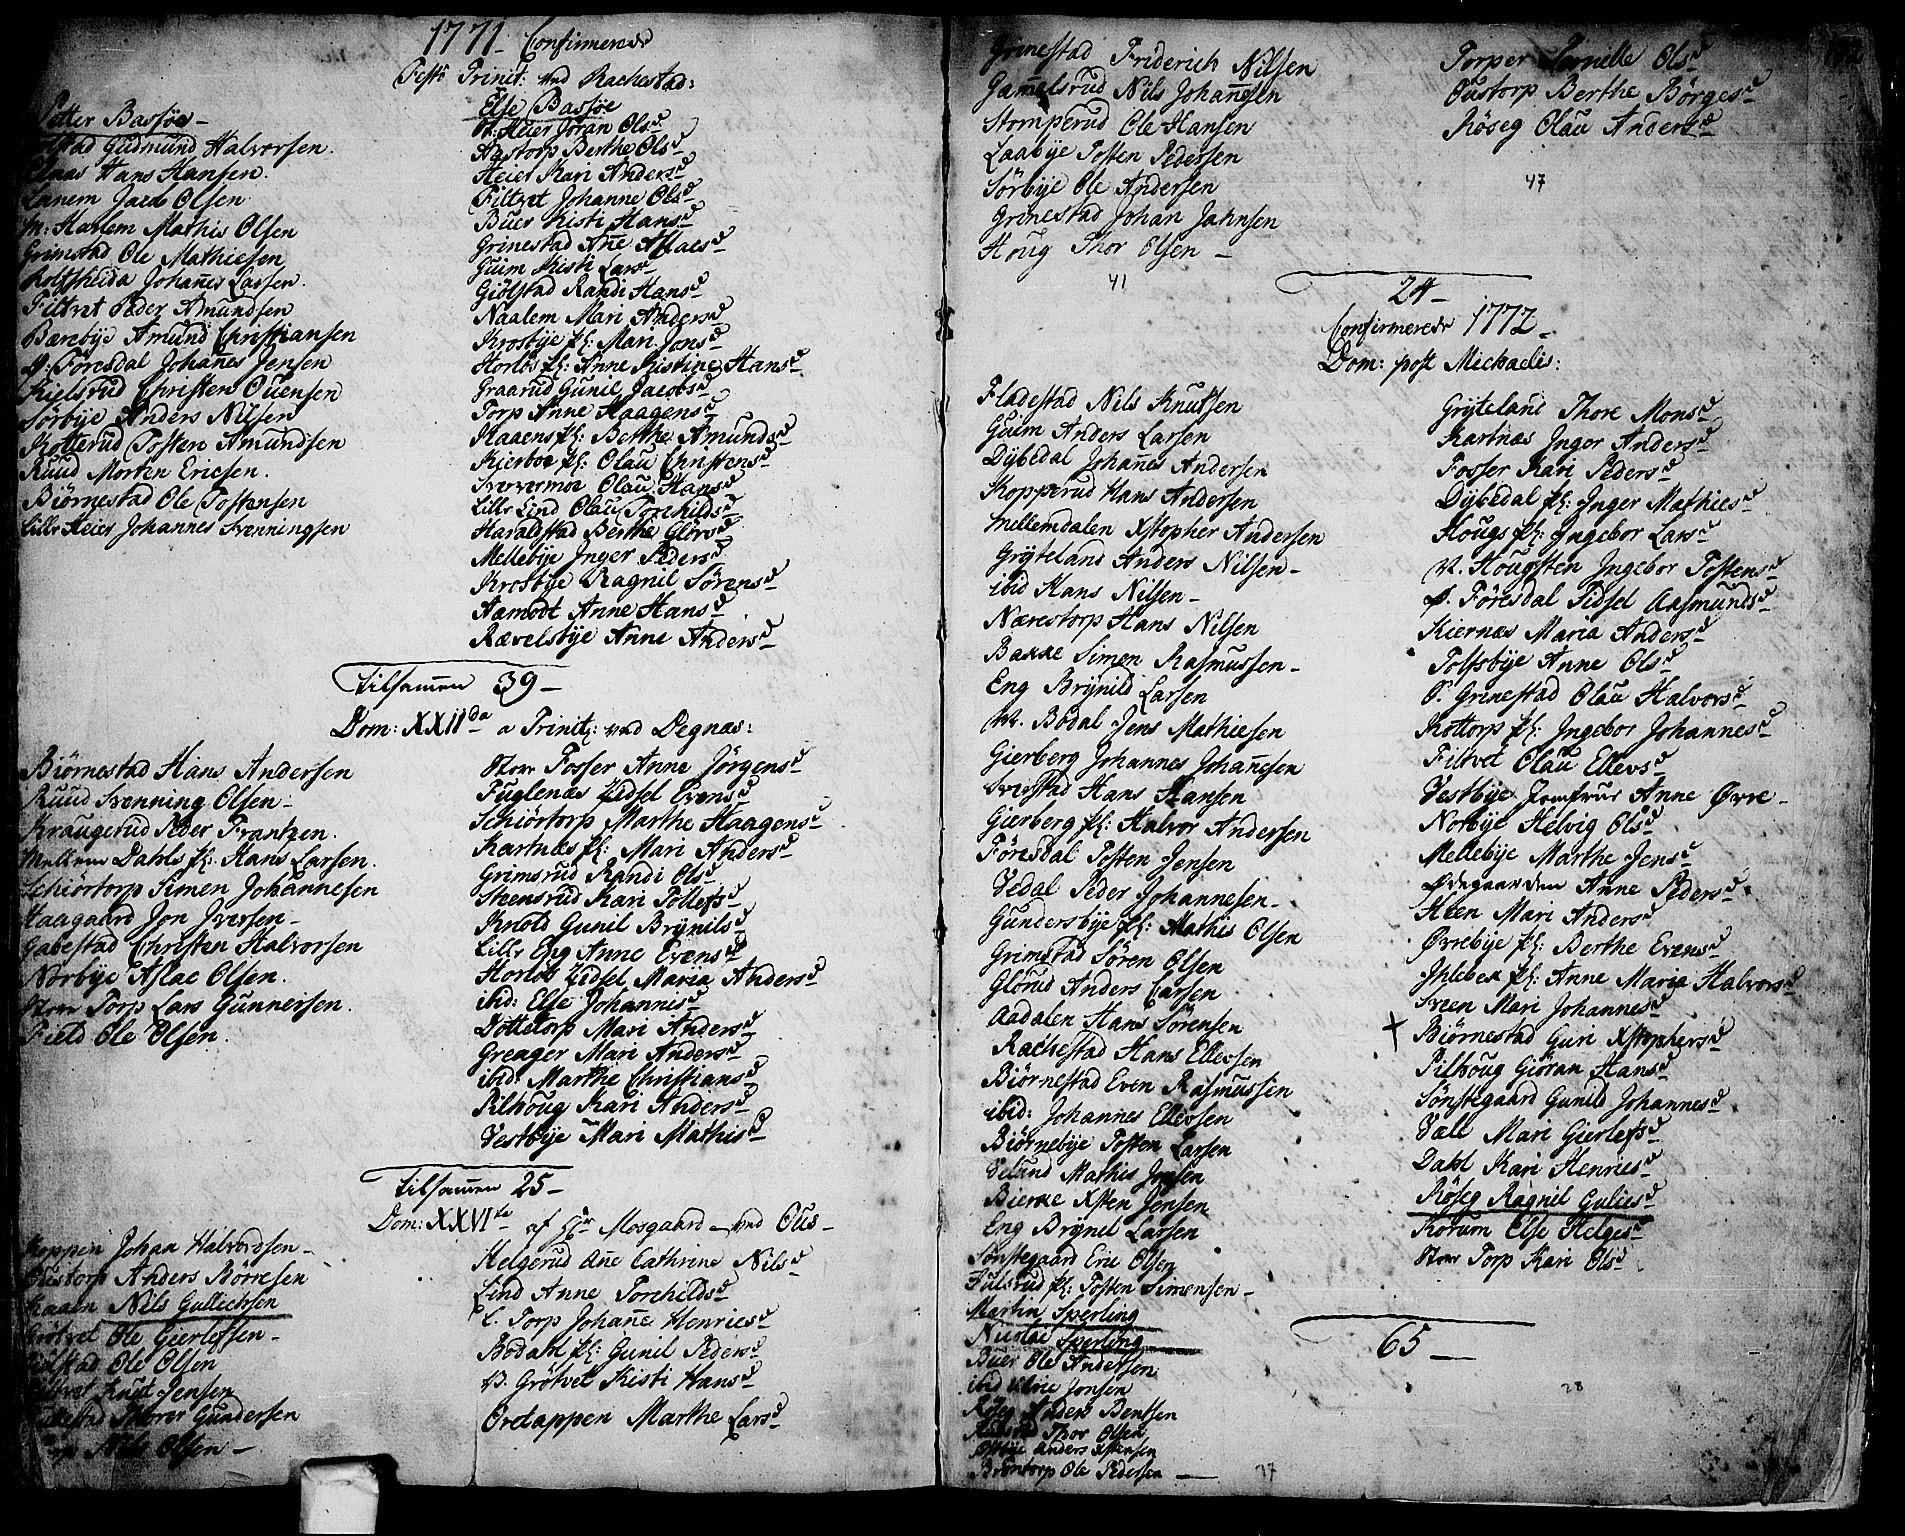 1771. Confirmerede
Festo Trinit: ved Rachestad:
Petter Bassøe
Gudmund Halvorsen.
Hans Hansen.
Lanem Jacob Olsen
M: Harlem Mathis Olsen
Grimstad Ole Mathiesen
Rolfsheida Johañes Larsen.
Filtvet Peder Amundsen
Bærebÿe Amund Christiansen
Ø: Føresdal Johañes Jensen
Kielsrud Christen Ouensen
Sørbÿe Anders Nilsen
Kotterud Tosten Amundsen
Ruud Morten Ericsen.
Biørnestad Ole Tostensen
Lille Heier Johannes Svenningsen
Else Bassøe
St: Heier Joran Olsd
Aastorp Berthe Olsd
Heier Kari Andersd
Filtvet Johanne Olsd
Buer Kisti Hansd
Grinestad Añe Aslacsd
Guim Kisti Larsd
Giølstad Randi Hansd
Naalem Mari Andersd
Krosbÿe pl: Mari Jonsd
Horløs pl: Anne Kistine Hansd
Graarud Gunil Jacobsd
Torp Anne Haagensd
Kaaens pl: Berthe Amundsd
Kierboe pl: Olau Christensd
Svevermoe Olau Hansd
Lille Lind Olau Torchildsd
Haraldstad Berthe Glørsd
Mellebÿe Inger Pedersd
Krosbÿe Ragnil Sørensd
Aamodt Anne Hansd
Rævelsbÿe Anne Andersd
Tilsam̃en 39
Dom: XXIIda a Trinit: ved Degnæs:
Biørnestad Hans Andersen
Ruud Svenning Olsen
Kraugerud Peder Frantzen.
Mellem Dahls pl: Hans Larsen.
Schiørtorp Simen Johannesen
Haagaard Jon Iversen
Gabestad Christen Halvorsen
Nørbÿe Aslac Olsen.
Store Torp Lars Gunnersen.
Field Ole Olsen.
Store Fosser Anne Jörgensd
Fuglenæs Zidsel Evensd
Schiörtorp Marthe Haagensd
Kartnæs pl: Mari Andersd
Grimsrud Randi Olsd
Steensrud Kari Tollefsd
Knold Gunil Brÿnilsd
Lille Eng Anne Evensd
Horløs Zidsel Maria Andersd
ibid: Else Johannisd
Dottetorp Mari Andersd
Greager Mari Andersd
ibid: Marthe Christiansd
Pilhoug Kari Andersd
Vestbÿe Mari Mathisd
Tilsam̃en 25
Dom: XXVIta af Hr Mosgaard ved Ous
Koppen Johan Halvordsen
Oustorp Anders Børresen
Kaaen Nils Gullichsen
Grøtvet Ole Gierlofsen
Giølstad Ole Olsen
Filtvet Knut Jensen
Thorer Gundersen
Torp Nils Olsen
Helgerud Añe Cathrine Nilsd
Lind Anne Torchildsd
L. Torp Johañe Henricsd
Bodahl pl: Gunil Pedersd
V. Grøtvet Kisti Hansd
Oretappen Marthe Larsd
Grinestad Friderich Nilsen
Gam̃elsrud Nils Johañesen
Stomperud Ole Hansen
Laabÿe Tosten Pedersen
Sørbÿe Ole Andersen
Grinestad Johan Jahnsen
Houg Thor Olsen
41
Torper Pernille Olsd
Oustorp Berthe Börgesd
Röseg Olau Andersd
47
24
Confirmerede 1772
Dom: post Michaelis:
Fladestad Nils Knutsen
Guim Anders Larsen
Dÿbedal Johañes Andersen
Kopperud Hans Andersen
Mellemdalen Xstopher Andersen
Grÿteland Anders Nilsen
ibid Hans Nilsen
Nærestorp Hans Nilsen
Bakke Simen Rasmussen
Eng Brÿnild Larsen
W. Bodal Jens Mathiesen
Gierberg Johannes Johañesen
Sverstad Hans Hansen
Gierberg pl: Halvor Andersen
Føresdal Tosten Jensen
Vedal Peder Johannesen
Gundersbÿe pl: Mathis Olsen
Grimstad Søren Olsen
Glørud Anders Larsen
Aadalen Hans Sørensen
Rachestad Hans Ellevsen
Biörnestad Even Rasmussen
ibid: Johannes Ellevsen
Biørnebÿe Tosten Larsen
Velund Mathis Jensen
Bierke Xsten Jensen
Eng Brÿnel Larsen
Sønstegaard Eric Olsen
Fulsrud pl: Tosten Simensen
Martin Sperling
Nicolai Sperling
Buer Ole Andersen
ibid Ulric Jonsen
Röseg Anders Bentsen
Thor Olsen
Anders Xstensen
Brøntorp Ole Pedersen
37
Grÿteland Thore Monsd
Kartnæs Inger Andersd
Fosser Kari Pedersd
Dÿbedal pl: Inger Mathiesd
Hougs pl: Ingebor Larsd
W. Hougsten Ingebor Tostensd
Ø. Føresdal Sidsel Aasmundsd
Kiernæs Maria Andersd
Toltsbÿe Anne Olsd
Grinestad Olau Halvorsd
Kottorp pl: Ingebor Johannesd
Filtvet Olau Ellevsd
Vestbÿe Jomfrue Anne Øvre
Norbÿe Helvig Olsd
Mellebÿe Marthe Jensd
Ødegaarden Anne Pedersd
Heen Mari Andersd
Øvrebÿe pl: Berthe Evensd
Ihlebek pl: Anne Maria Halvorsd
Sveen Mari Johannesd
Biørnestad Guri Xstophersd
Pilhoug Giøran Hansd
Sønstegaard Gunild Johannesd
Vale Mari Gierlefsd
Dahl Kari Henricsd
Röseg Ragnil Guliesd
Korum Else Helgesd
Store Torp Kari Olsd
65
28